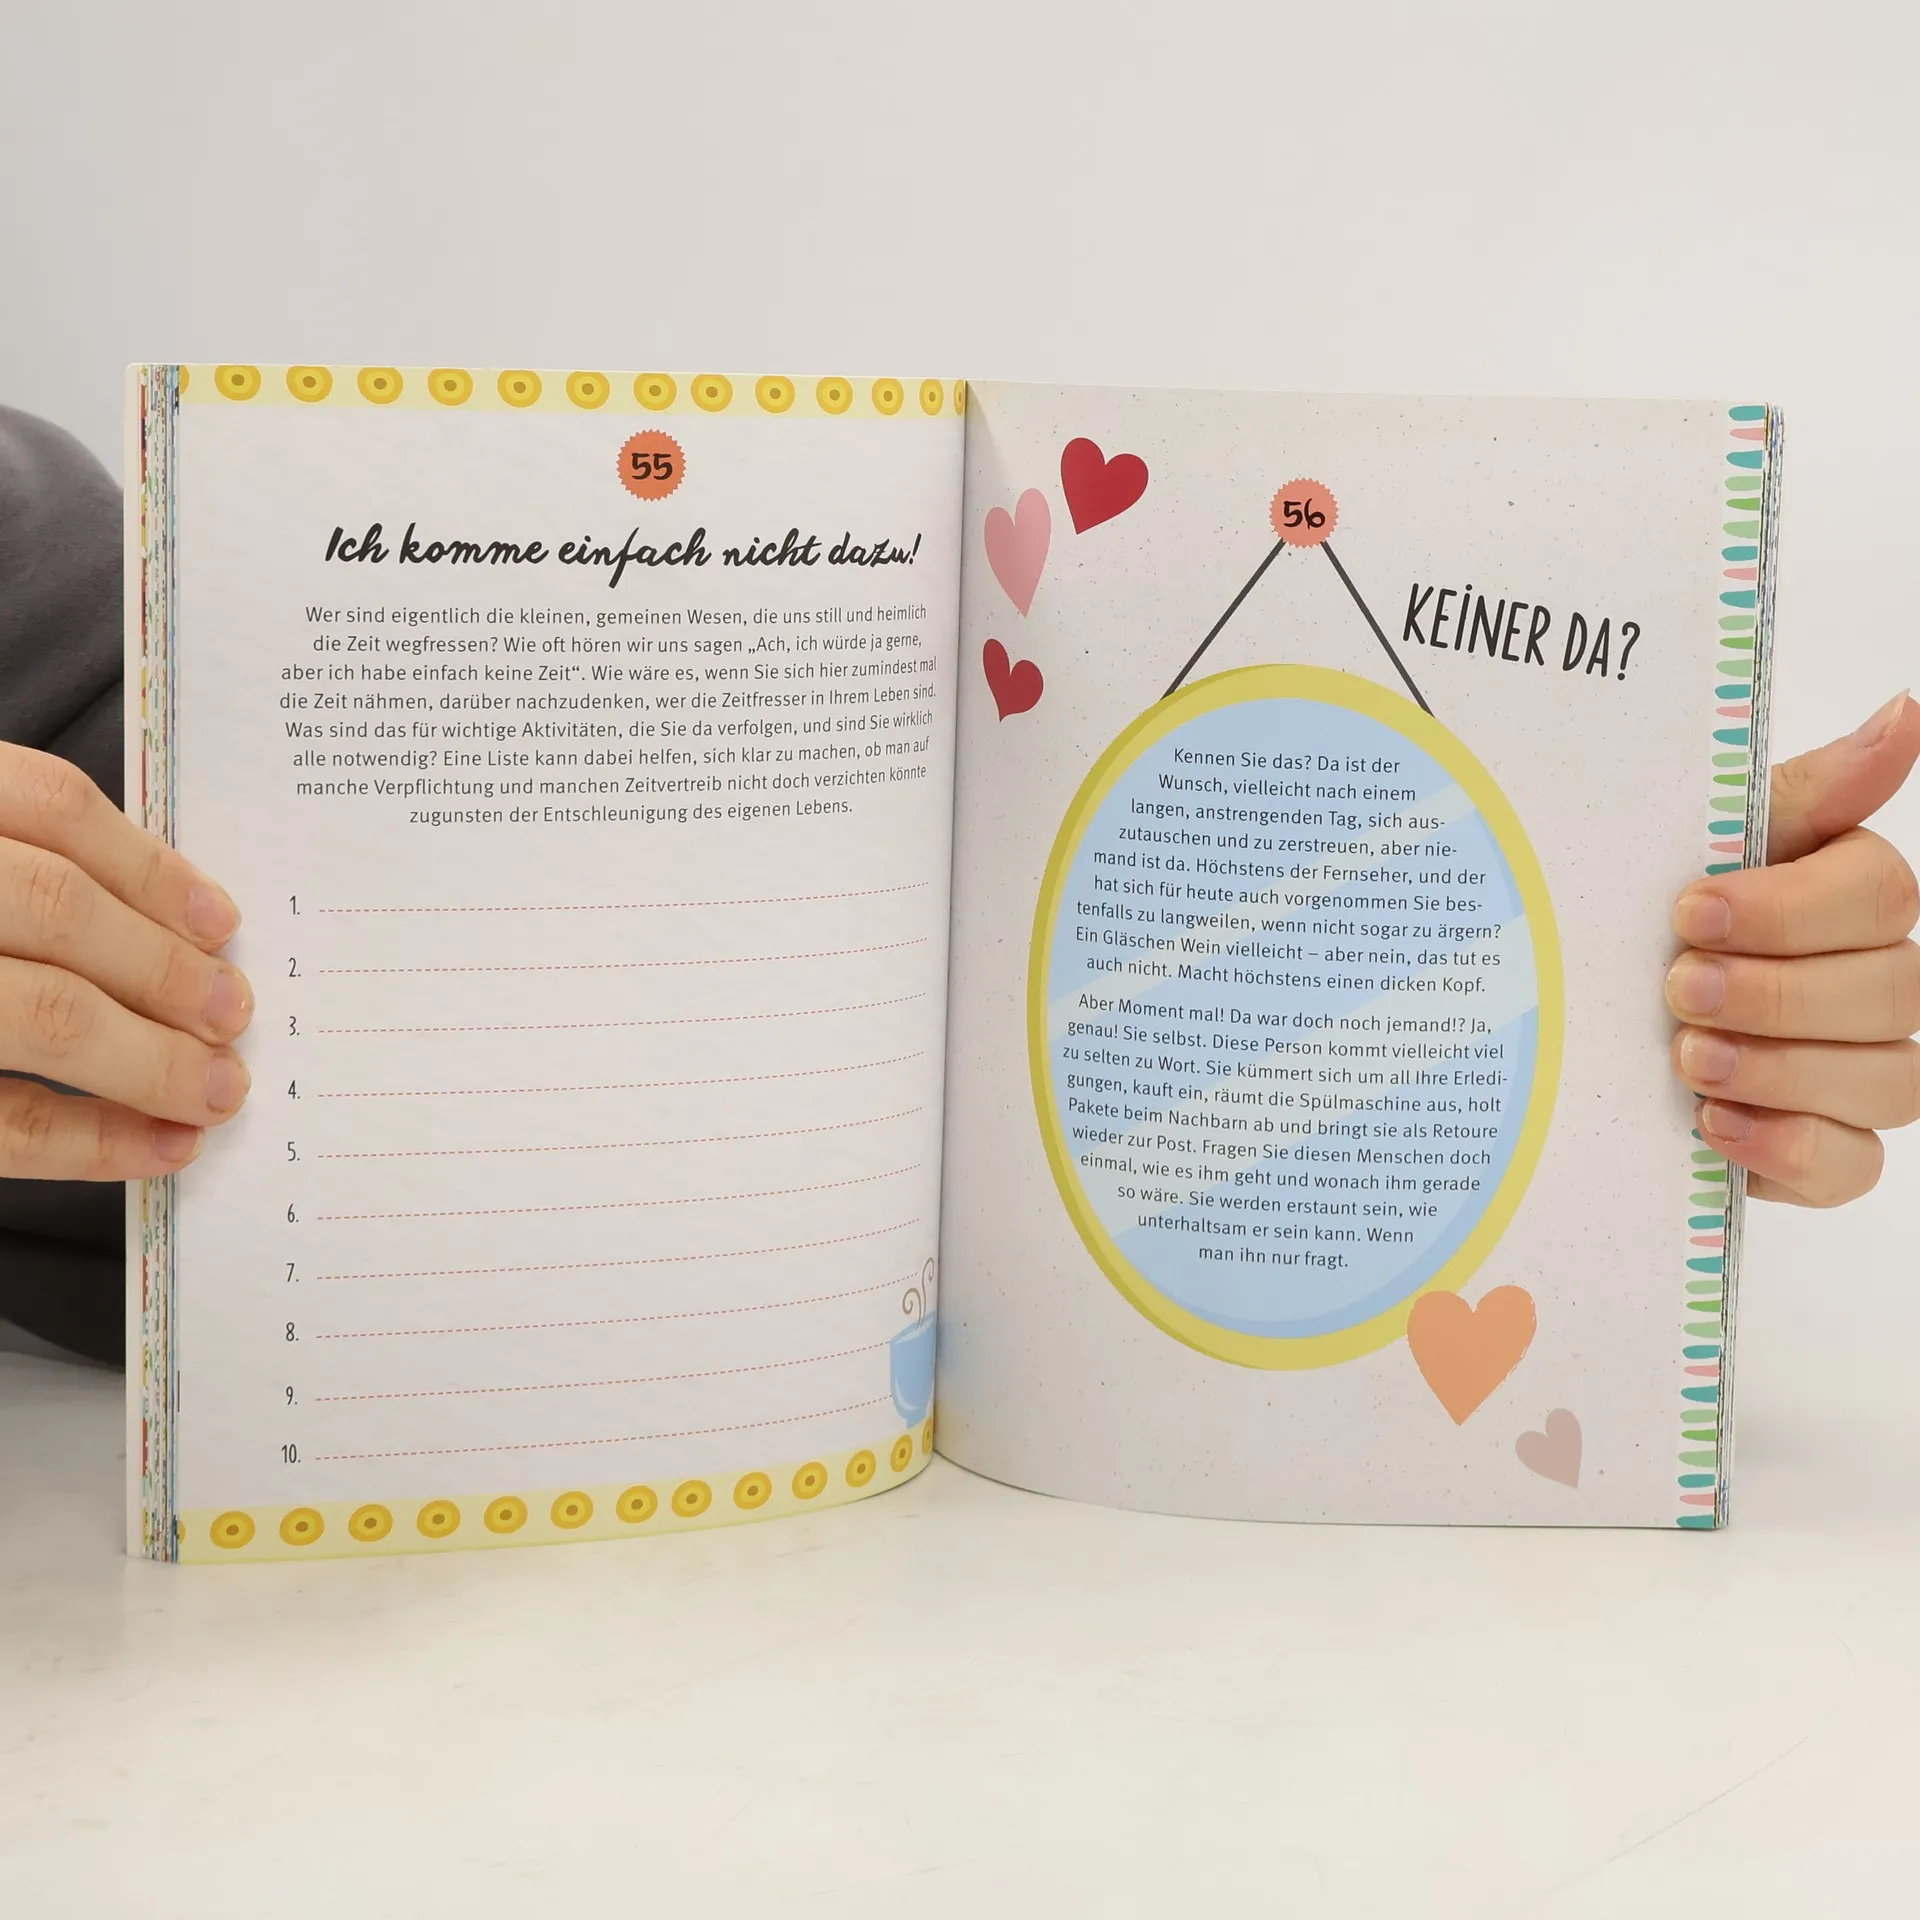 55
Ich komme einfach nicht dazu!
Wer sind eigentlich die kleinen, gemeinen Wesen, die uns still und heimlich
die Zeit wegfressen? Wie oft hören wir uns sagen „Ach, ich würde ja gerne,
aber ich habe einfach keine Zeit“. Wie wäre es, wenn Sie sich hier zumindest mal
die Zeit nähmen, darüber nachzudenken, wer die Zeitfresser in Ihrem Leben sind.
Was sind das für wichtige Aktivitäten, die Sie da verfolgen, und sind Sie wirklich
alle notwendig? Eine Liste kann dabei helfen, sich klar zu machen, ob man auf
manche Verpflichtung und manchen Zeitvertreib nicht doch verzichten könnte
zugunsten der Entschleunigung des eigenen Lebens.
1.
2.
3.
4.
5.
6.
7.
8.
9.
10.
56
KEINER DA?
Kennen Sie das? Da ist der
Wunsch, vielleicht nach einem
langen, anstrengenden Tag, sich aus-
zutauschen und zu zerstreuen, aber nie-
mand ist da. Höchstens der Fernseher, und der
hat sich für heute auch vorgenommen Sie bes-
tenfalls zu langweilen, wenn nicht sogar zu ärgern?
Ein Gläschen Wein vielleicht – aber nein, das tut es
auch nicht. Macht höchstens einen dicken Kopf.
Aber Moment mal! Da war doch noch jemand!? Ja,
genau! Sie selbst. Diese Person kommt vielleicht viel
zu selten zu Wort. Sie kümmert sich um all Ihre Erledi-
gungen, kauft ein, räumt die Spülmaschine aus, holt
Pakete beim Nachbarn ab und bringt sie als Retoure
wieder zur Post. Fragen Sie diesen Menschen doch
einmal, wie es ihm geht und wonach ihm gerade
so wäre. Sie werden erstaunt sein, wie
unterhaltsam er sein kann. Wenn
man ihn nur fragt.